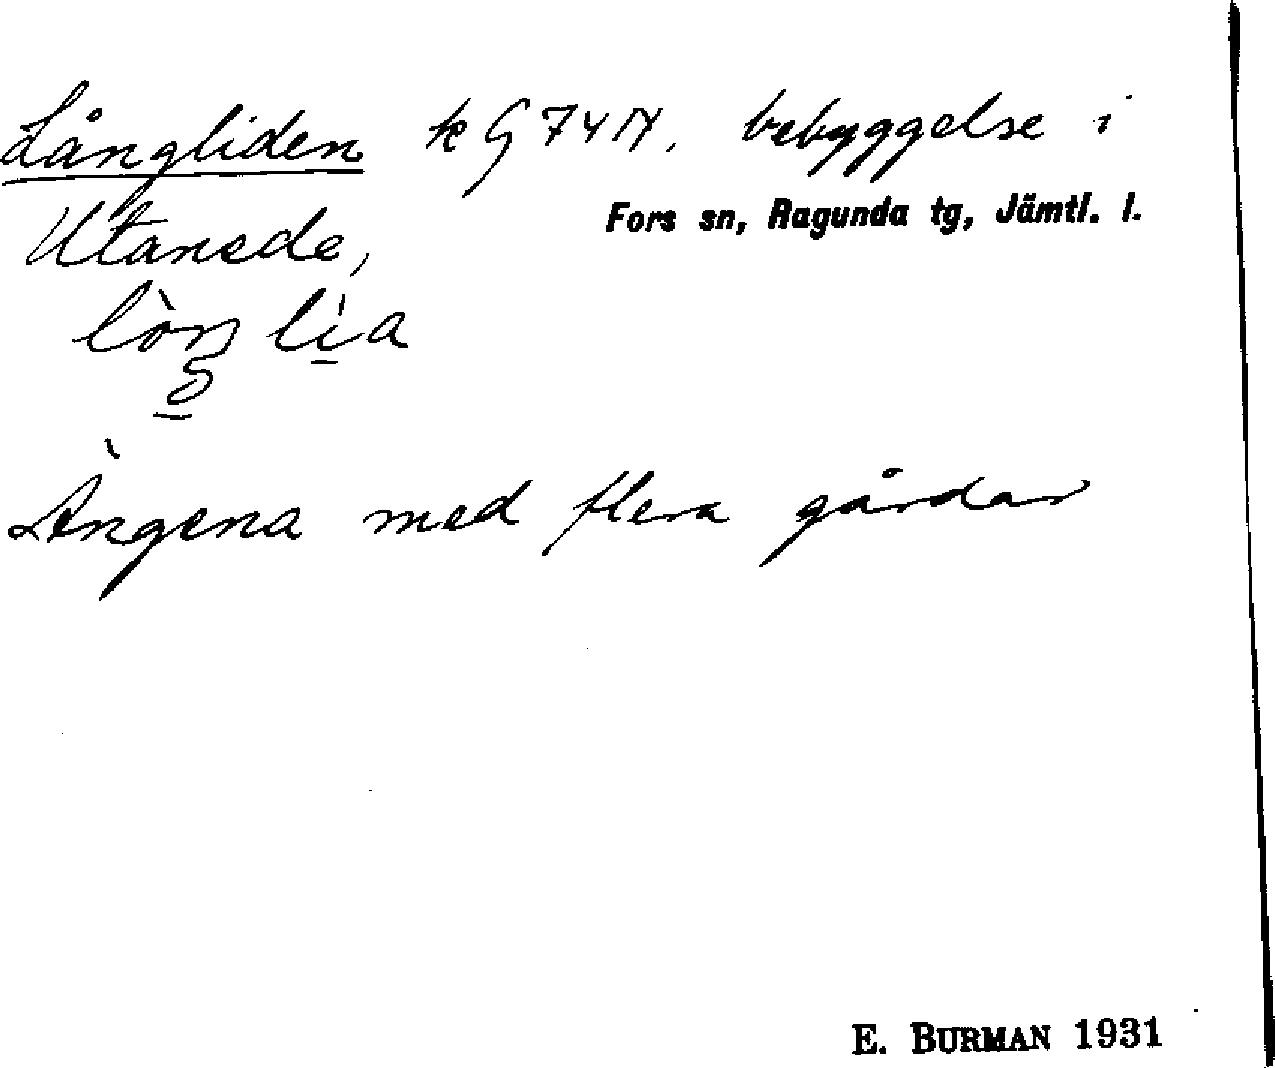 Långliden k G 74 N, bebyggelse i
Fors sn, Ragunda tg, Jämtl. l.
Utanede,
lia
Ängena med flera gårdar
E. BURMAN 1931